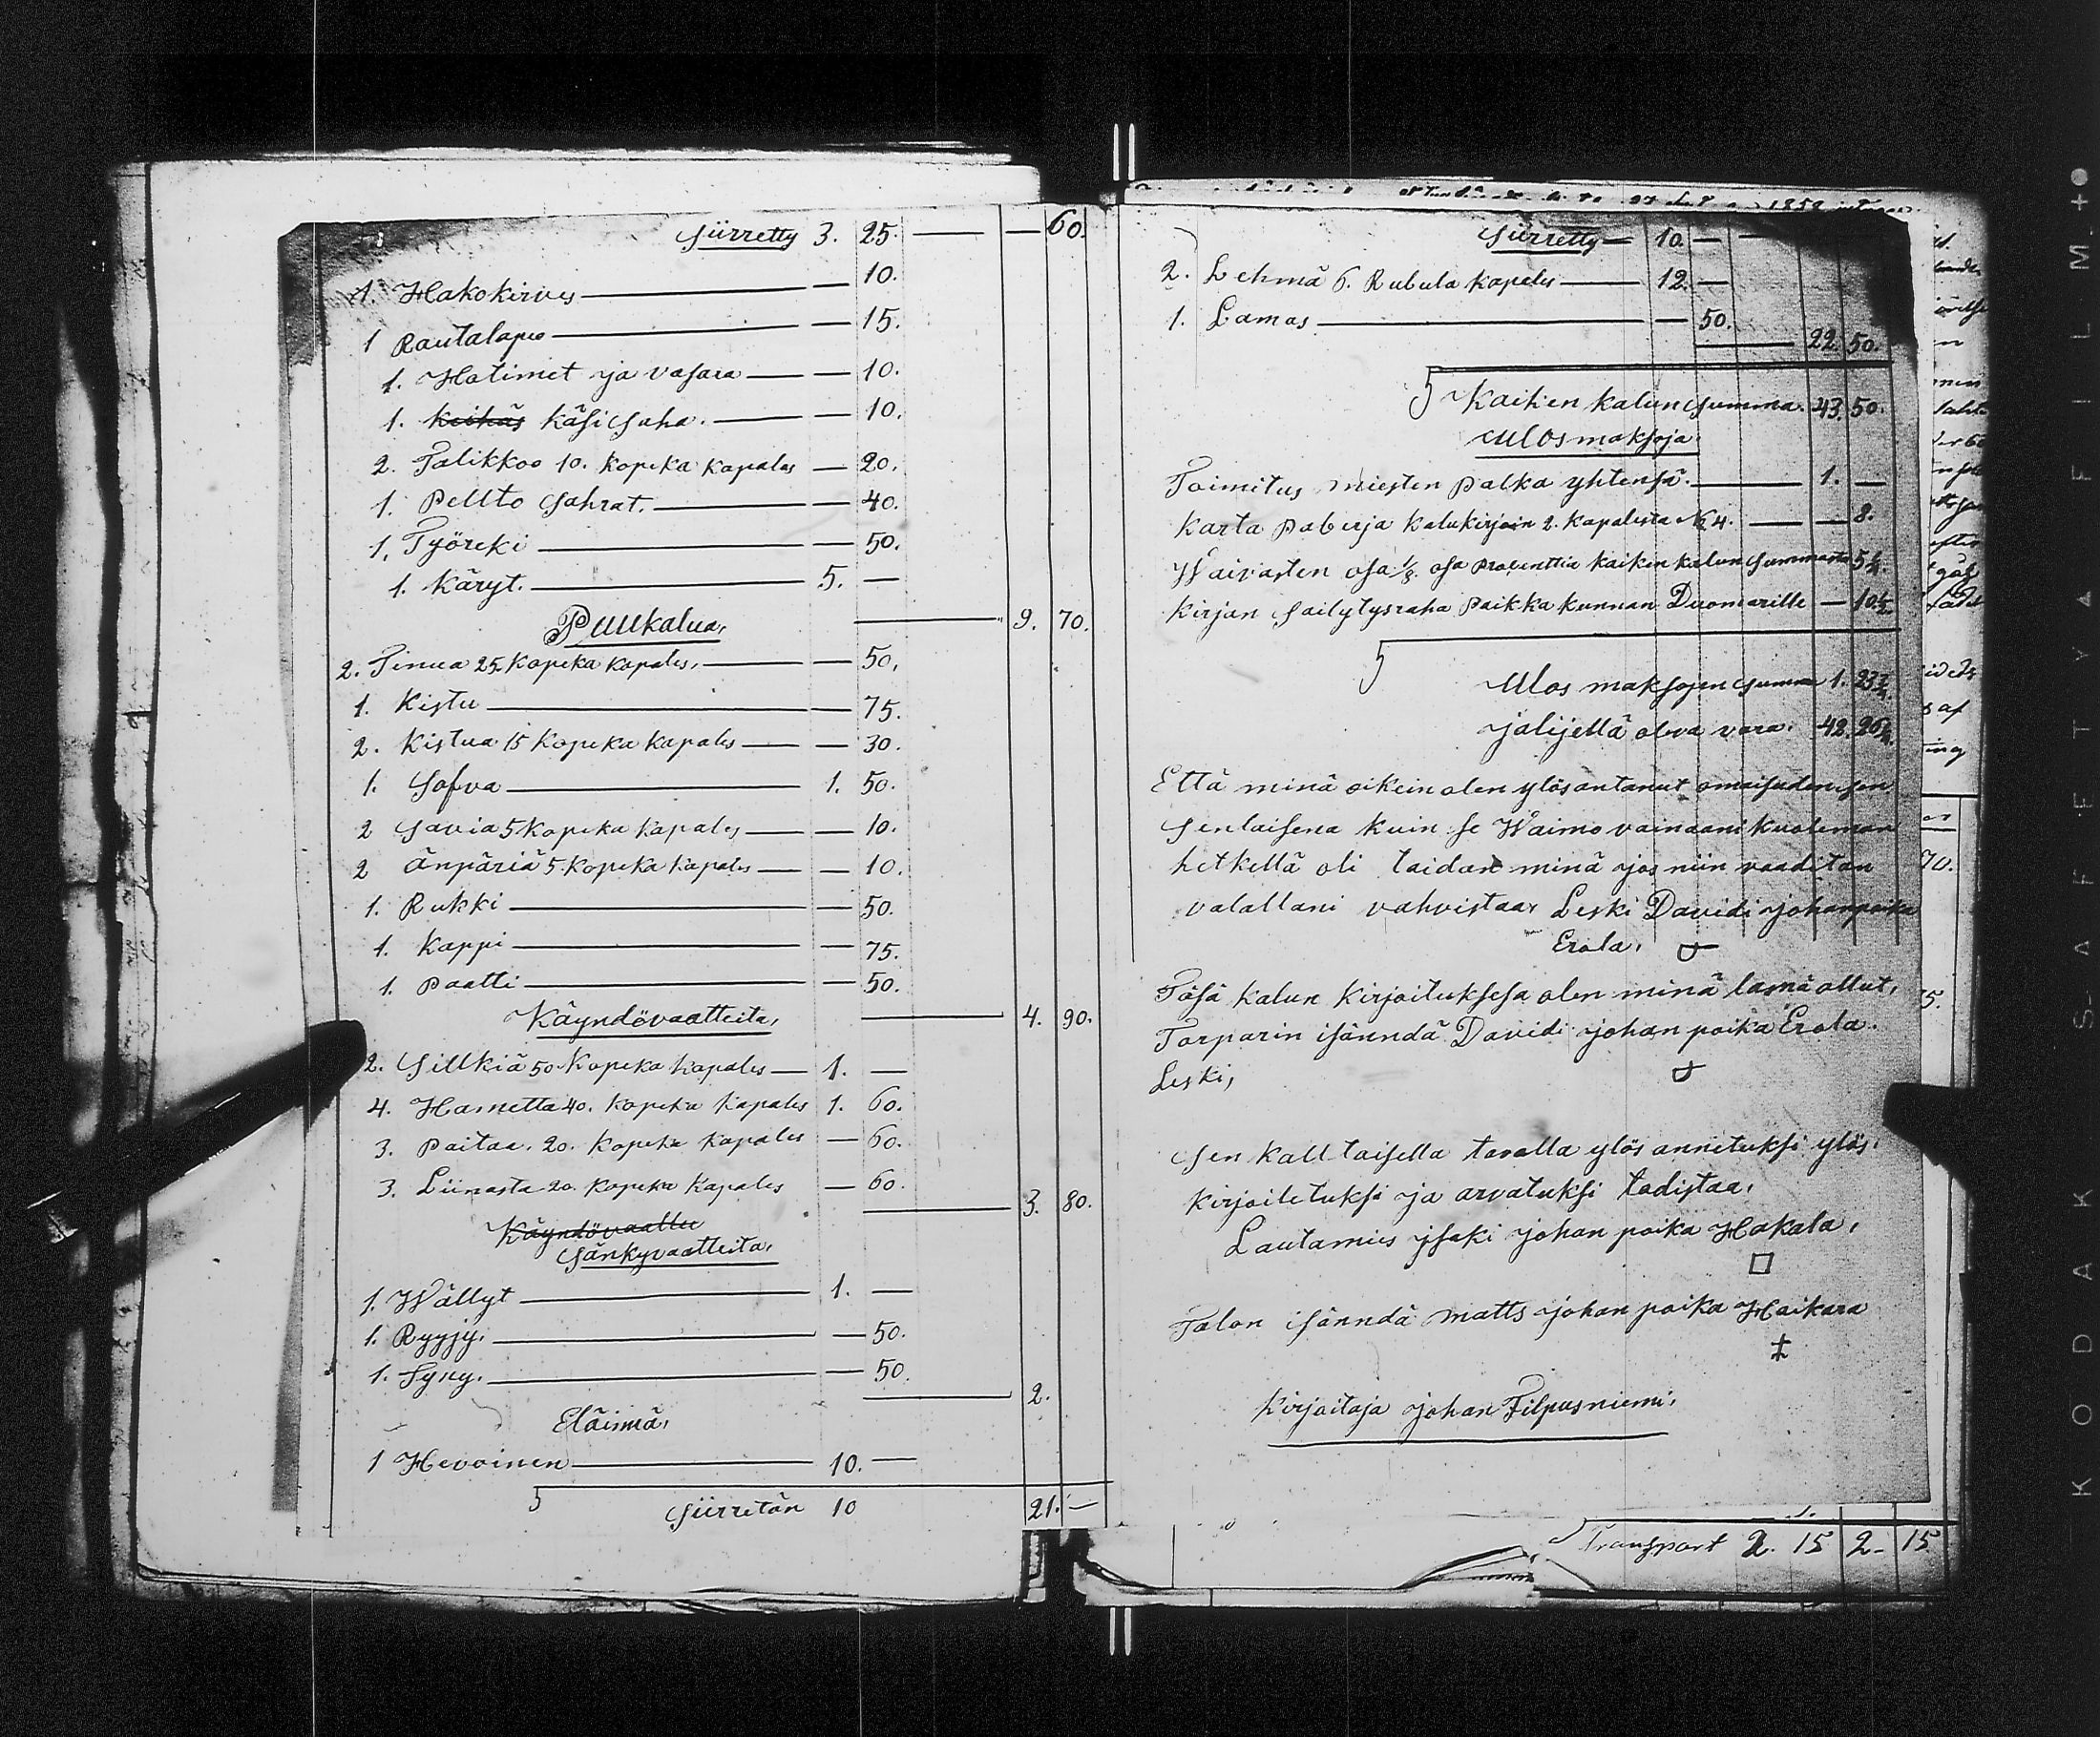 Siirretty 3. 25. — — 60.
1. Hakokirves — — 10.
1 Rautalapeo — — 15.
1. Hatimet ja vasara — — 10.
1. Keihäs Käsi Saha. — — 10.
2. Talikkoo 10. Kopeka Kapales — 20.
1. Pellto Sahrat. — — 40.
1. Työreki — — 50.
1. Käryt. — 5. —
Puukalua, — 9. 70.
2. Tinua 25. Kopeka Kapales. — — 50.
1. Kistu — — 75.
2. Kistua 15 Kopeka Kapales — — 30.
1. Sofva — 1. 50.
2 Savia 5 Kopeka Kapales — — 10.
2 Änpäriä 5. Kopeka Kapales — — 10.
1. Rukki — — 50.
1. Kappi — — 75.
1. Paatti — — 50.
Käyndövaatteita, — 4. 90.
2. Sillkiä 50. Kopeka Kapales — 1. —
4. Hametta 40. Kopeka Kapales 1. 60.
3. Paitaa. 20. Kopeka Kapales — 60.
3. Liinasta 20. Kopeka Kapales — 60.
— 3. 80.
Käyndövaattee
Sänkyvaatteita,
1. Wällyt — 1. —
1. Ryyjy. — — 50.
1. Syny. — — 50.
— 2.
Eläimä,
1 Hevoinen — 10. —
Siirretän 10 21. —
1858
Siirretty — 10. —
2. Lehmä 6. Rubula Kapales — 12. —
1. Lamas — — 50.
— 22. 50.
Kaiken Kalun Summa. 43. 50.
Ulos maksoja.
Toimitus miesten Palka yhtensä. — 1. —
Karta Paberja Kalukirjain 2. Kapalesta № 4. — — 8.
Waivasten osa 1/8. osa Prosenttia Kaiken Kalun Summasta 5 1/4
Kirjan Sailytysraha Paikka Kunnan Duomarille — 10 1/2.
Ulos maksojen Summa 1. 23 3/4.
jälijellä oleva vara. 42. 26 1/4.
Että minä oikein olen ylösantanut omaisudensen
Senlaisena Kuin se Waimo vainaani Kuoleman
hetkellä oli taidan minä jos niin vaaditan
valallani vahvistaa, Leski Davidi Johanpoika
Erola.
Täsä Kalun Kirjoituksesa olen minä läsnä ollut,
Torparin isänndä Davidi Johan poika Erola.
Leski,
Sen Kalltaisella tavalla ylös annetuksi ylös.
Kirjoitetuksi ja arvatuksi todistaa,
Lautamies ysaki Johan poika Hakala,
Talon isänndä Matts Johan poika Haikara
Kirjoitaja Johan Filpusniemi,
Transport 2. 15 2- 15
KODAK SAFETY FILM